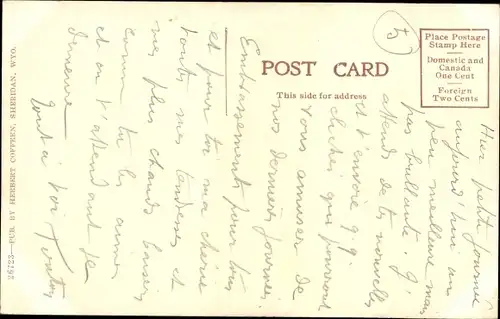 POST CARD
This side for address
Place Postage
Stamp Here
Domestic and
Canada
One Cent
Foreign
Two Cents
PUB. BY HERBERT COFFEEN, SHERIDAN, WYO.
petite journée
aujourd'hui un
peu meilleure mais
pas brillante. J'
attends de tes nouvelles
et t'envoie q.q.
clichés qui pourront
vous amuser de
nos dernières journées.
Embrassements pour tous
et pour toi ma chérie
toutes mes tendresses et
mes plus chauds baisers
comme tu les aimes
et en t'attendant je
demeure
Tout à toi